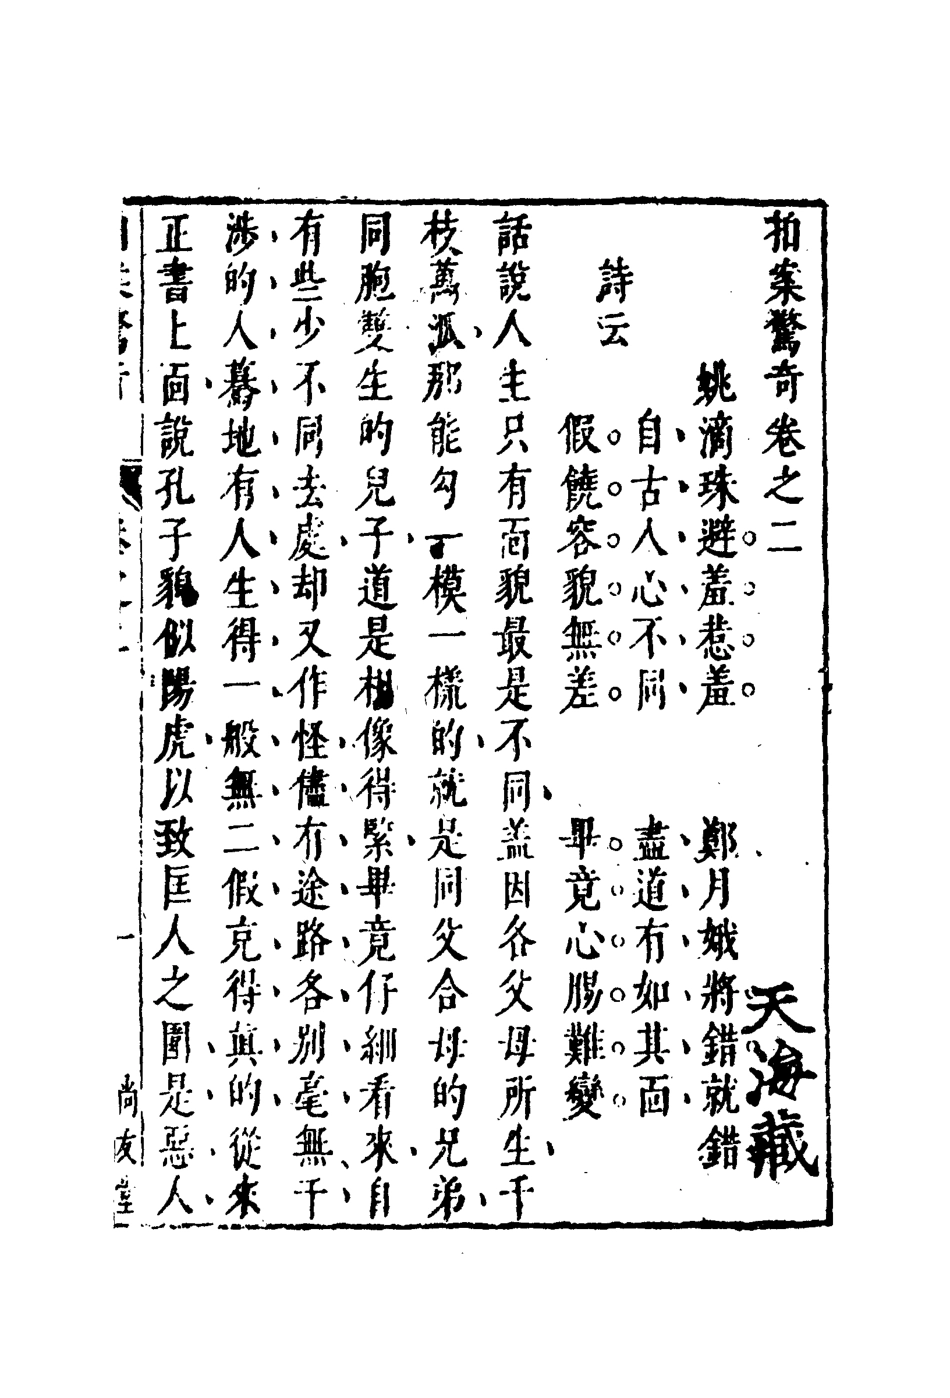 拍案驚奇卷之二
天海藏
姚滴珠避羞惹羞　鄭月娥將錯就錯
詩云
自古人心不同　盡道有如其面
假饒容貌無差　畢竟心腸難變
話說人生只有面貌最是不同盖因各父母所生千
枝萬派那能勾一模一樣的就是同父合母的兄弟
同胞雙生的兒子道是相像得緊畢竟仔細看來自
有些少不同去處却又作怪儘有途路各別毫無干
涉的人驀地有人生得一般無二假充得真的從來
正書上面說孔子貌似陽虎以致匡人之圍是惡人
卷之二
一
尚友堂